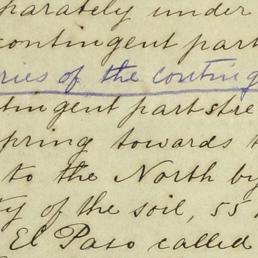 parately under
contingent part
ries of the conting
tingent part stre
pring towards t
to the North by
ty of the soil, 55
El Paso called